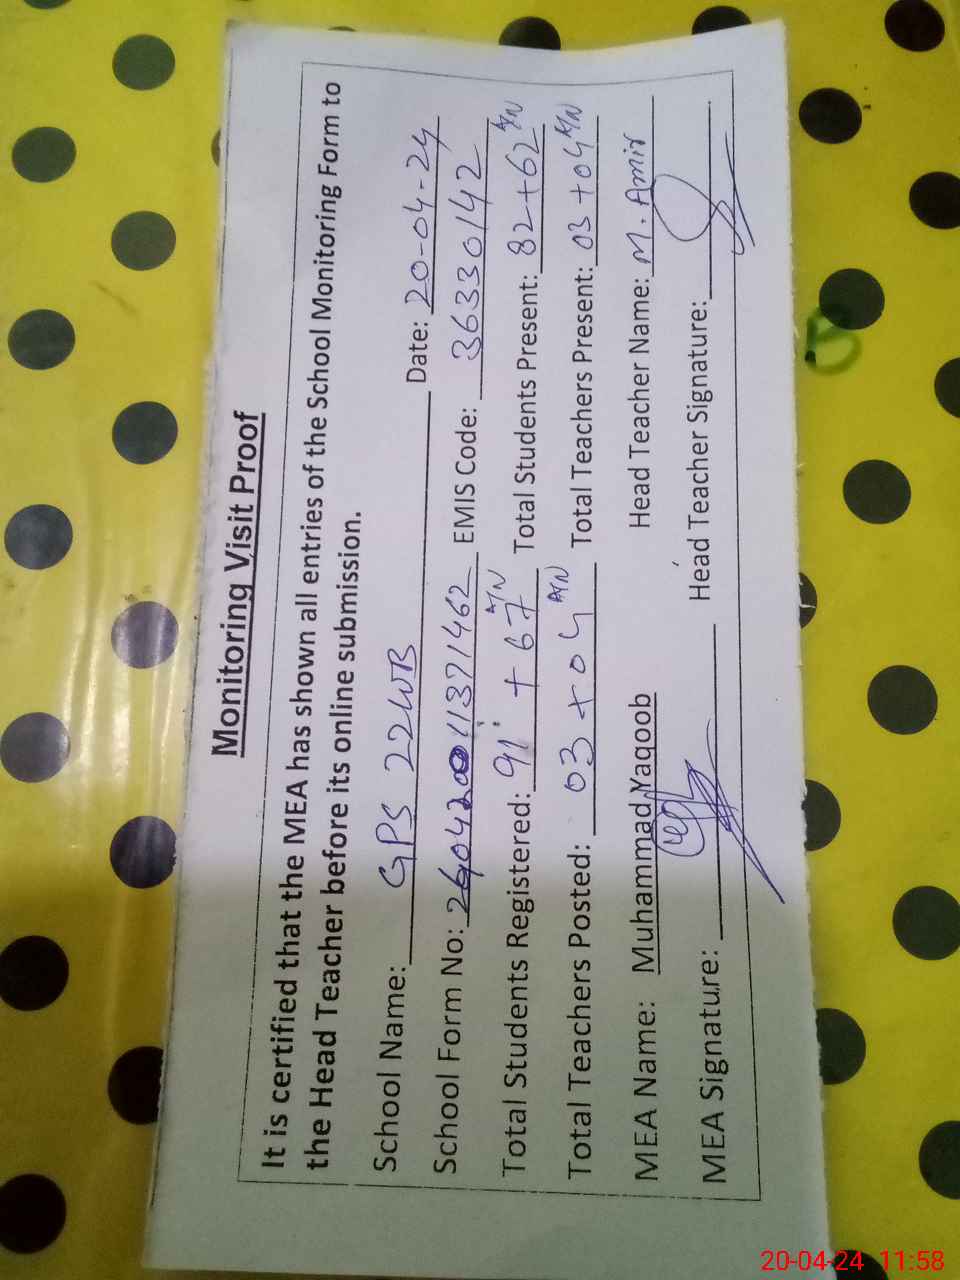 Monitoring Visit Proof
It is certified that the MEA has shown all entries of the School Monitoring Form to
the Head Teacher before its online submission.
School Name: GPS 22WB Date: 20-04-24
School Form No: 11371462 EMIS Code: 36330142
Total Students Registered: 91 + 67 Total Students Present: 82+62
Total Teachers Posted: 03 + 04 Total Teachers Present: 03 + 04
MEA Name: Muhammad Yaqoob Head Teacher Name: M. Amir
MEA Signature: Head Teacher Signature:
20-04-24 11:58